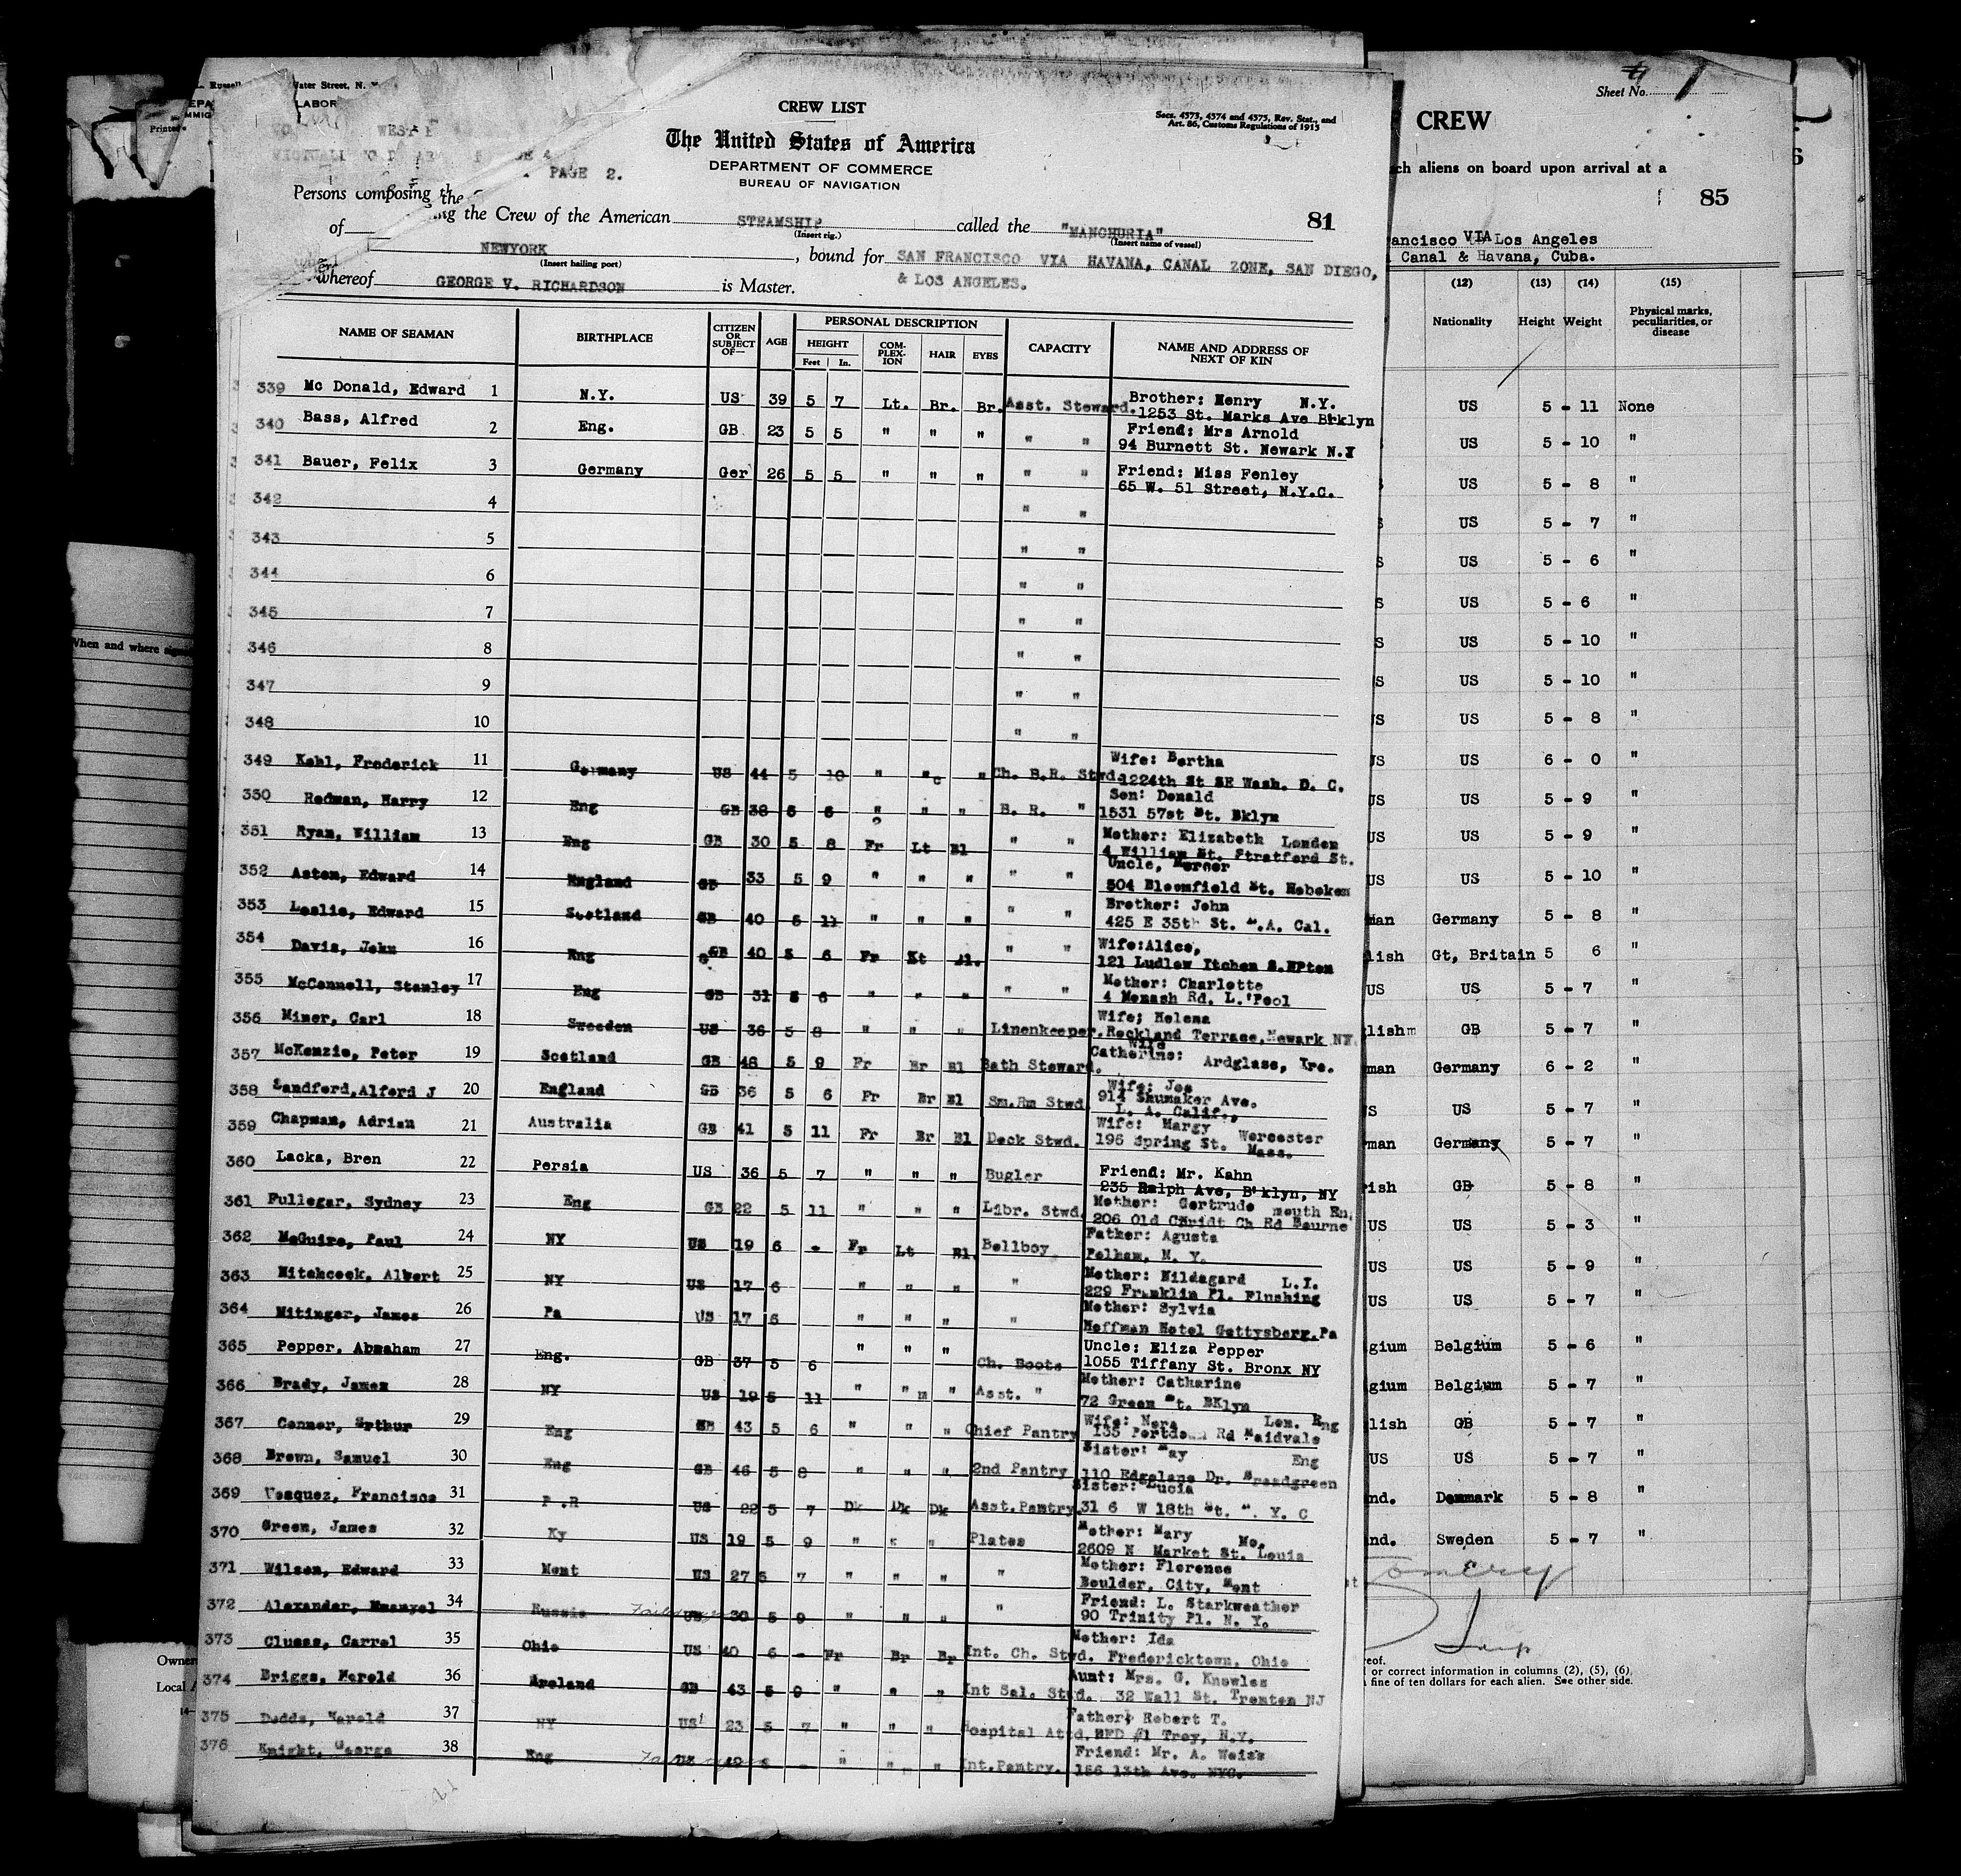 Water Street, N. Y.
LABOR
WEST
PAGE 2.
CREW LIST
Secs. 4573, 4574 and 4575, Rev. Stat., and
Art. 86, Customs Regulations of 1915
The United States of America
DEPARTMENT OF COMMERCE
BUREAU OF NAVIGATION
Persons composing the
the Crew of the American STEAMSHIP called the "MANCHURIA" 81
(Insert rig.) (Insert name of vessel)
of NEWYORK, bound for SAN FRANCISCO VIA HAVANA, CANAL ZONE, SAN DIEGO,
(Insert hailing port)
& LOS ANGELES.
whereof GEORGE V. RICHARDSON is Master.
NAME OF SEAMAN BIRTHPLACE CITIZEN OR SUBJECT OF— AGE PERSONAL DESCRIPTION CAPACITY NAME AND ADDRESS OF NEXT OF KIN
HEIGHT COM-PLEX-ION HAIR EYES
Feet In.
339 Mc Donald, Edward 1 N.Y. US 39 5 7 Lt. Br. Br. Asst. Steward. Brother: Henry N.Y.
1253 St. Marks Ave Brklyn
340 Bass, Alfred 2 Eng. GB 23 5 5 " " " " " Friend: Mrs Arnold
94 Burnett St. Newark N.J
341 Bauer, Felix 3 Germany Ger 26 5 5 " " " " " Friend: Miss Fenley
65 W. 51 Street, N.Y.C.
342 4 " "
343 5 " "
344 6 " "
345 7 " "
346 8 " "
347 9 " "
348 10 " "
349 Kehl, Frederick 11 Germany US 44 5 10 " " " Ch. B.R. Stwd. Wife: Bertha
1224th St SE Wash. D. C.
350 Redman, Harry 12 Eng GB 38 6 6 " " " B. R. " Son: Donald
1531 57st St. Bklyn
351 Ryan, William 13 Eng GB 30 5 8 Fr Lt Bl " " Mother: Elizabeth London
4 William St. Stratford St.
352 Aston, Edward 14 England GB 33 5 9 " " " " " Uncle, Mercer
504 Bloomfield St. Hoboken
353 Leslie, Edward 15 Scotland GB 40 5 11 " " " " " Brother: John
425 E 35th St. L.A. Cal.
354 Davis, John 16 Eng GB 40 5 6 Fr Lt Bl. " " Wife:Alice,
121 Ludlow Itchen S.HPton
355 McConnell, Stanley 17 Eng GB 31 5 6 " " " " " Mother: Charlotte
4 Menash Rd. L.'Pool
356 Miner, Carl 18 Sweeden US 36 5 8 " " " Linenkeeper. Wife; Helena
Rockland Terrace, Newark NY.
357 McKenzie, Peter 19 Scotland GB 48 5 9 Fr Br Bl Bath Steward. Wife
Catherine: Ardglass, Ire.
358 Sandford,Alford J 20 England GB 36 5 6 Fr Br Bl Sm.Rm Stwd Wife: Joe
914 Shumaker Ave.
L. A. Calif.,
359 Chapman, Adrian 21 Australia GB 41 5 11 Fr Br Bl Deck Stwd. Wife: Margy Worcester
196 Spring St. Mass.
360 Lacka, Bren 22 Persia US 36 5 7 " " " Bugler Friend: Mr. Kahn
235 Ralph Ave, B'klyn, NY
361 Fullegar, Sydney 23 Eng GB 22 5 11 " " " Libr. Stwd. Mother: Gertrude mouth En.
206 Old Chridt Ch Rd Bourne
362 McGuire, Paul 24 NY US 19 6 - Fr Lt Bl Bellboy Father: Agusta
Pelham, N. Y.
363 Hitchcock, Albert 25 NY US 17 6 " " " " Mother: Hildagard L.I.
229 Franklin Pl. Flushing
364 Mitinger, James 26 Pa US 17 6 " " " " Mother: Sylvia
Hoffman Hotel Gettysberg.Pa
365 Pepper, Abraham 27 Eng. GB 37 5 6 " " " Ch. Boots Uncle: Eliza Pepper
1055 Tiffany St. Bronx NY
366 Brady, James 28 NY US 19 5 11 " " " Asst. " Mother: Catharine
72 Green St. BKlyn
367 Conner, Arthur 29 Eng GB 43 5 6 " " " Chief Pantry Wife: Nora Lon. Eng
135 Portdown Rd Maidvale
368 Brown, Samuel 30 Eng GB 46 5 8 " " " 2nd Pantry Sister: May Eng
110 Edgelane Dr. Broadgreen
369 Vesquez, Francisco 31 P.R US 22 5 7 Dk Dk Dk Asst.Pantry. Sister: Lucia
31 6 W 18th St. N. Y. C
370 Green, James 32 Ky US 19 5 9 " " " Plates Mother: Mary Mo.
2609 N Market St. Louis
371 Wilson, Edward 33 Mont US 27 5 7 " " " " Mother: Florence
Boulder, City, Mont
372 Alexander, Emanyel 34 Russia Failed US 30 5 9 " " " " Friend: L. Starkweather
90 Trinity Pl. N. Y.
373 Cluass, Carrel 35 Ohio US 40 6 - Fr Br Br Int. Ch. Stwd. Mother: Ida
Fredericktown, Ohio
374 Briggs, Harold 36 Areland GB 43 5 9 " " " Int Sal. Stwd. Aunt: Mrs. G. Knowles
32 Wall St. Trenton NJ
375 Dodds, Harold 37 NY US 23 5 7 " " " Hospital Attd. Father: Robert T.
RFD #1 Troy, N.Y.
376 Knight, George 38 Eng " " " Int.Pantry. Friend: Mr. A. Weiss
156 13th Ave. NYC.
When and where
Owner
Local
Sheet No. 1
CREW
ch aliens on board upon arrival at a
85
ancisco VIA Los Angeles
Canal & Havana, Cuba.
(12) (13) (14) (15)
Nationality Height Weight Physical marks, peculiarities, or disease
US 5 - 11 None
US 5 - 10 "
US 5 - 8 "
US 5 - 7 "
US 5 - 6 "
US 5 - 6 "
US 5 - 10 "
US 5 - 10 "
US 5 - 8 "
US US 6 - 0 "
US US 5 - 9 "
US US 5 - 9 "
US US 5 - 10 "
man Germany 5 - 8 "
lish Gt, Britain 5 6 "
US US 5 - 7 "
lishm GB 5 - 7 "
man Germany 6 - 2 "
S US 5 - 7 "
man Germany 5 - 7 "
ish GB 5 - 8 "
US US 5 - 3 "
US US 5 - 9 "
US US 5 - 7 "
gium Belgium 5 - 6 "
gium Belgium 5 - 7 "
lish GB 5 - 7 "
US US 5 - 7 "
nd. Denmark 5 - 8 "
nd. Sweden 5 - 7 "
reof.
or correct information in columns (2), (5), (6).
fine of ten dollars for each alien. See other side.